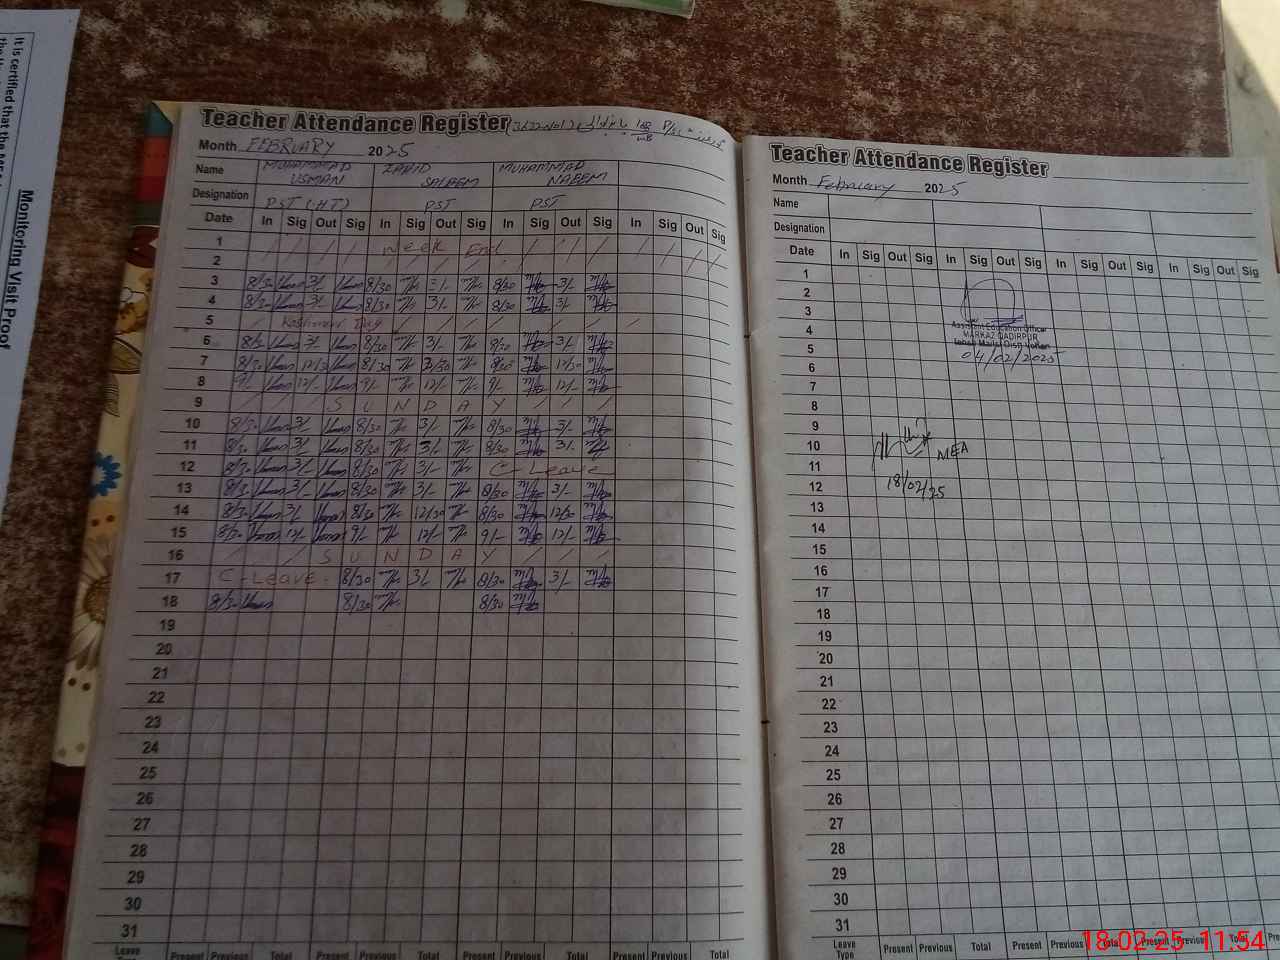 It is certified that the MEA
Monitoring Visit Proof
Teacher Attendance Register
Month FEBRUARY 2025
Name MUHAMMAD USMAN ZAHID SALEEM MUHAMMAD NAEEM
Designation PST (HT) PST PST
Date In Sig Out Sig In Sig Out Sig In Sig Out Sig In Sig Out Sig
1 Week End
2
3 8/30 3/- 8/30 3/- 8/30 3/-
4 8/30 3/- 8/30 3/- 8/30 3/-
5 Kashmir Day
6 8/30 3/- 8/30 3/- 8/30 3/-
7 8/30 12/30 8/30 12/30 8/30 12/30
8 9/- 12/- 9/- 12/- 9/- 12/-
9 SUNDAY
10 8/30 3/- 8/30 3/- 8/30 3/-
11 8/30 3/- 8/30 3/- 8/30 3/-
12 8/30 3/- 8/30 3/- C-Leave
13 8/30 3/- 8/30 3/- 8/30 3/-
14 8/30 3/- 8/30 12/30 8/30 12/30
15 8/30 12/- 9/- 12/- 9/- 12/-
16 SUNDAY
17 C-LEAVE 8/30 3/- 8/30 3/-
18 8/30 8/30 8/30
19
20
21
22
23
24
25
26
27
28
29
30
31
Leave Type Present Previous Total Present Previous Total Present Previous Total
Teacher Attendance Register
Month February 2025
Name
Designation
Date In Sig Out Sig In Sig Out Sig In Sig Out Sig In Sig Out Sig
1
2
3
4
5
6
7
8
9
10
11
12
13
14
15
16
17
18
19
20
21
22
23
24
25
26
27
28
29
30
31
Assistant Education Officer
MARKAZ QADIRPUR
04/02/2025
MEA
18/02/25
Leave Type Present Previous Total Present Previous Total Present Previous Total
18-02-25 11:54